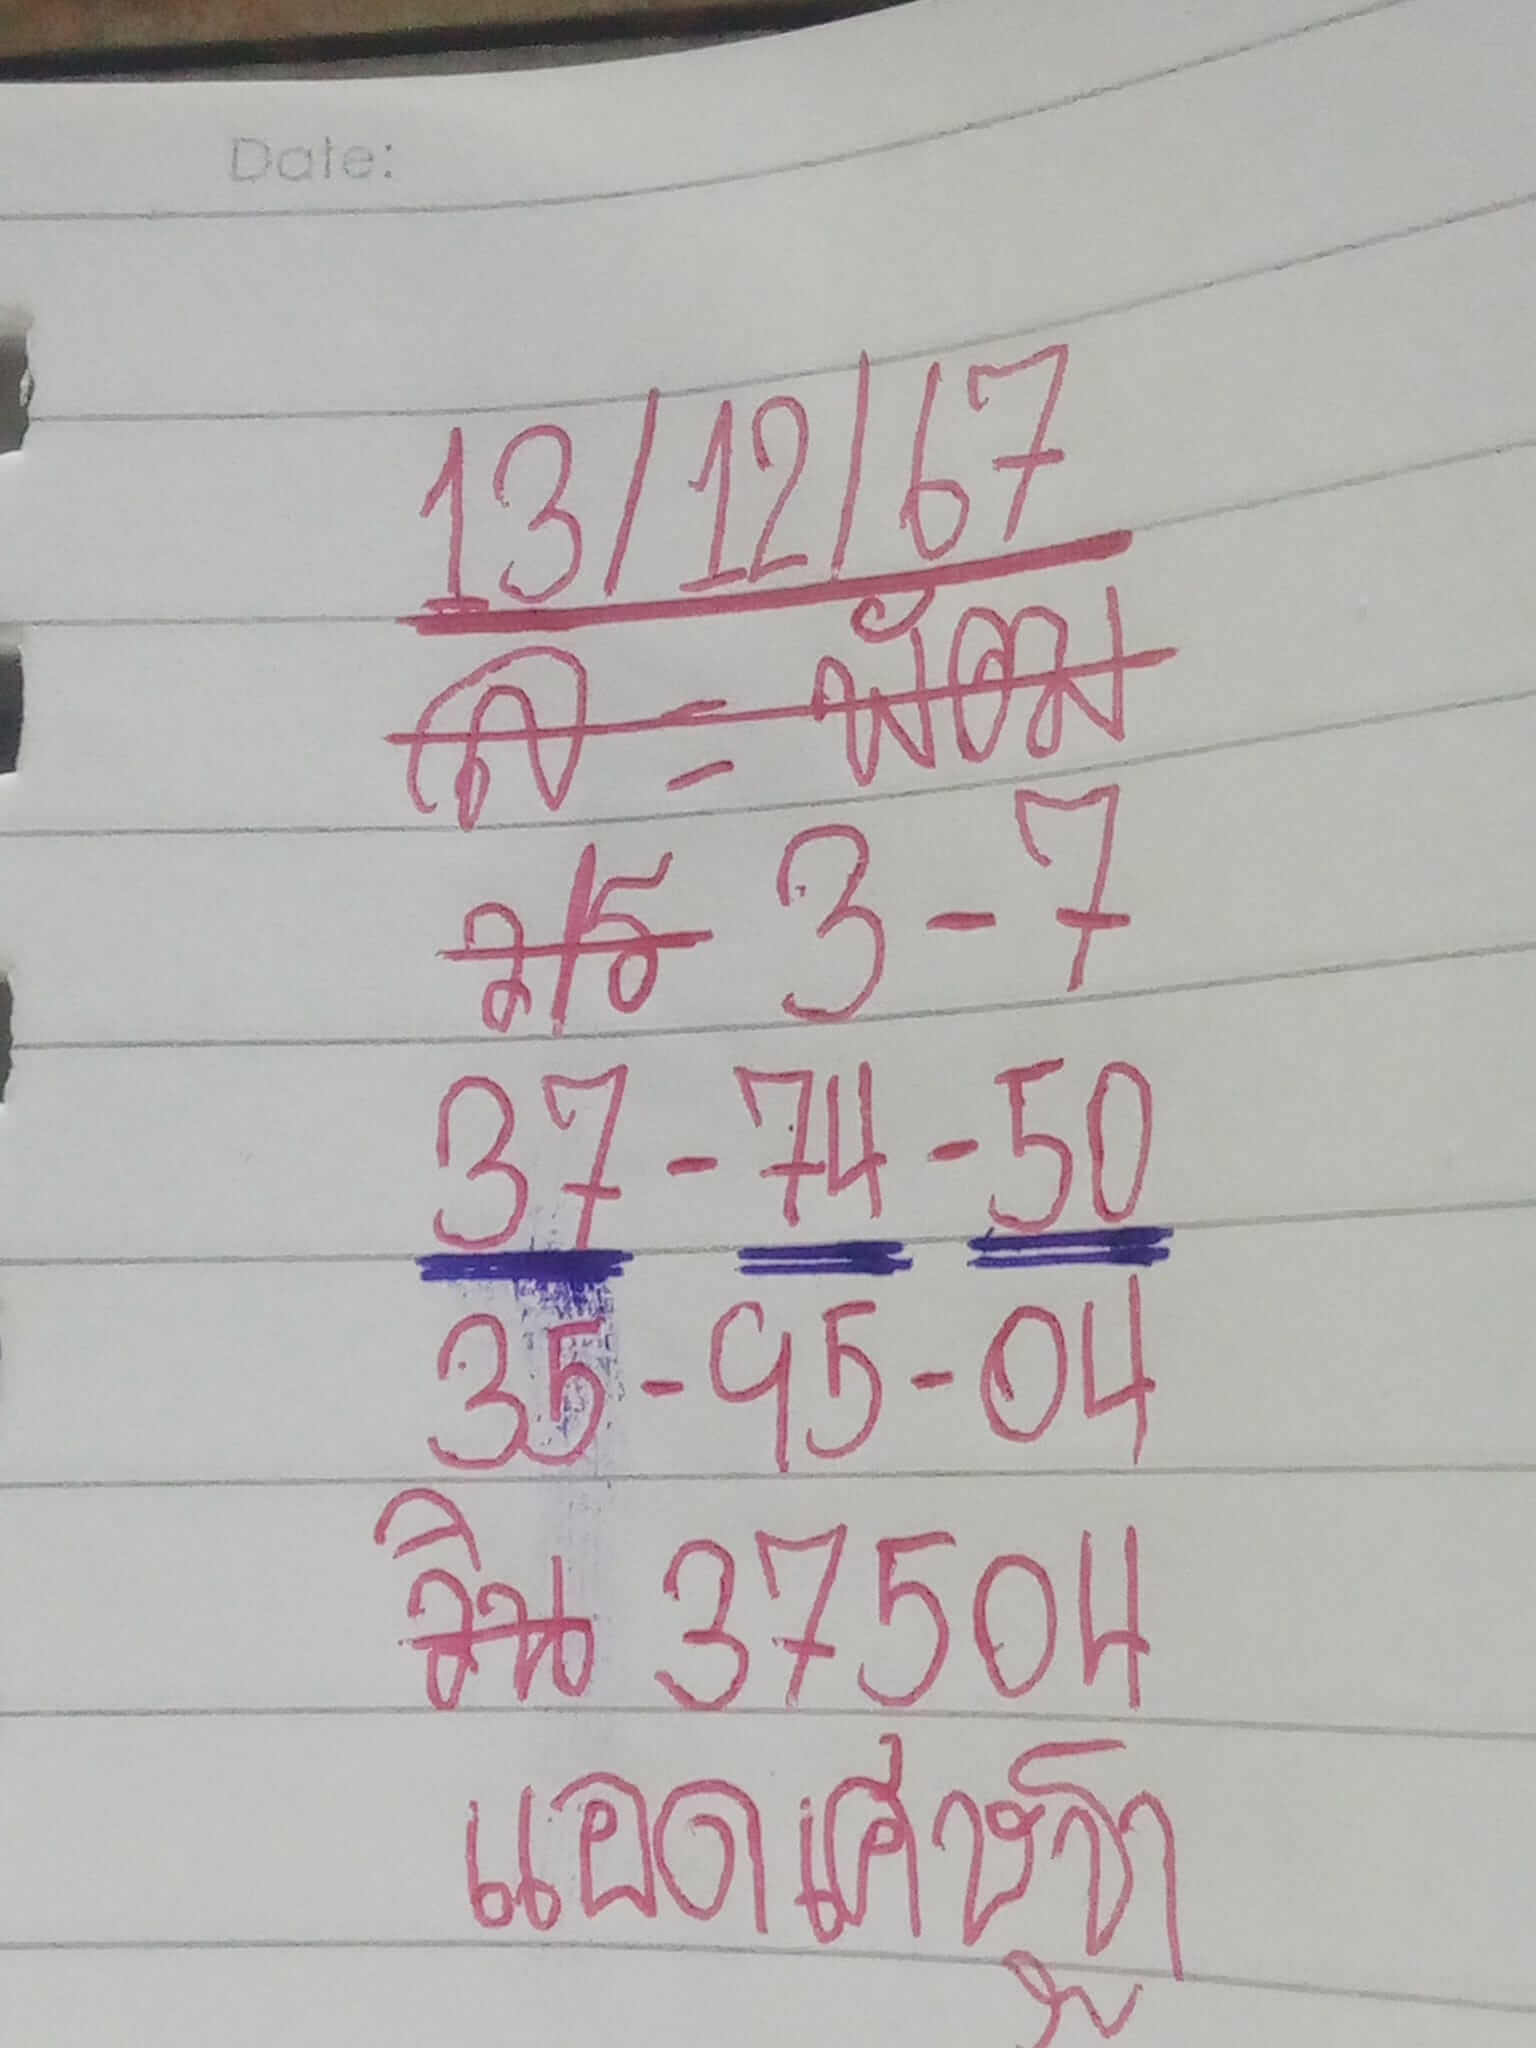 Date:
13/12/67
ล = พัฒม
ม/ร 3-7
37-74-50
35-95-04
วิน 37504
แอดเศษฐี